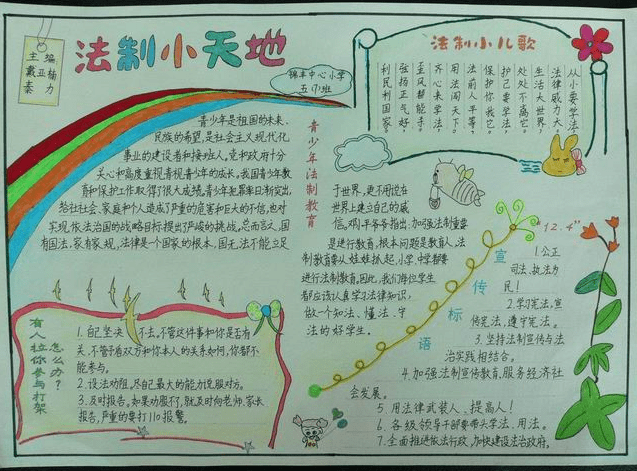 法制小天地
主编
戴亚杨
秦力
锦丰中心小学
五(1)班
法制小儿歌
从小要学法
法律威力大。
生活大世界，
处处不离它。
护己要学法，
保护你我它。
法前人平等，
用法闯天下。
齐心来学法，
歪风帮能手。
弘扬正气好，
利民利国家。
青少年法制教育
青少年是祖国的未来，
民族的希望，是社会主义现代化
事业的建设者和接班人。党和政府十分
关心和高度重视青少年的成长，我国青少年教
育和保护工作取得了很大成绩。青少年犯罪率日渐突出，
给社社会、家庭和个人造成了严重的危害和巨大的不信，也对
实现依法治国的战略目标提出了严峻的挑战。总而言之，国
有国法，家有家规，法律是一个国家的根本，国无法不能立足
于世界，更不用说在
世界上建立自己的威
信。邓小平爷爷指出：加强法制重要
是进行教育，根本问题是教育人，法
制教育要从娃娃抓起，小学、中学都要
进行法制教育。因此，我们每位学生
都应该认真学习法律知识，
做一个知法、懂法、守
法的好学生。
有人拉你参与打架
怎么办？
1.自己坚决不去，不管这件事和你是否有
关，不管于有双方和你本人的关系如何，你都不
能参与。
2.设法劝阻，尽自己最大的能力说服对方。
3.及时报告。如果劝服不了，就及时向老师、家长
报告，严重的要打110报警。
宣传标语
"12.4"
1.公正
司法，执法为
民！
2.学习宪法，宣
传宪法，遵守宪法。
3.坚持法制宣传与法
治实践相结合。
4.加强法制宣传教育，服务经济社
会发展。
5.用法律武装人、提高人！
6.各级领导干部要带头学法、用法。
7.全面推进依法行政，加快建设法治政府。